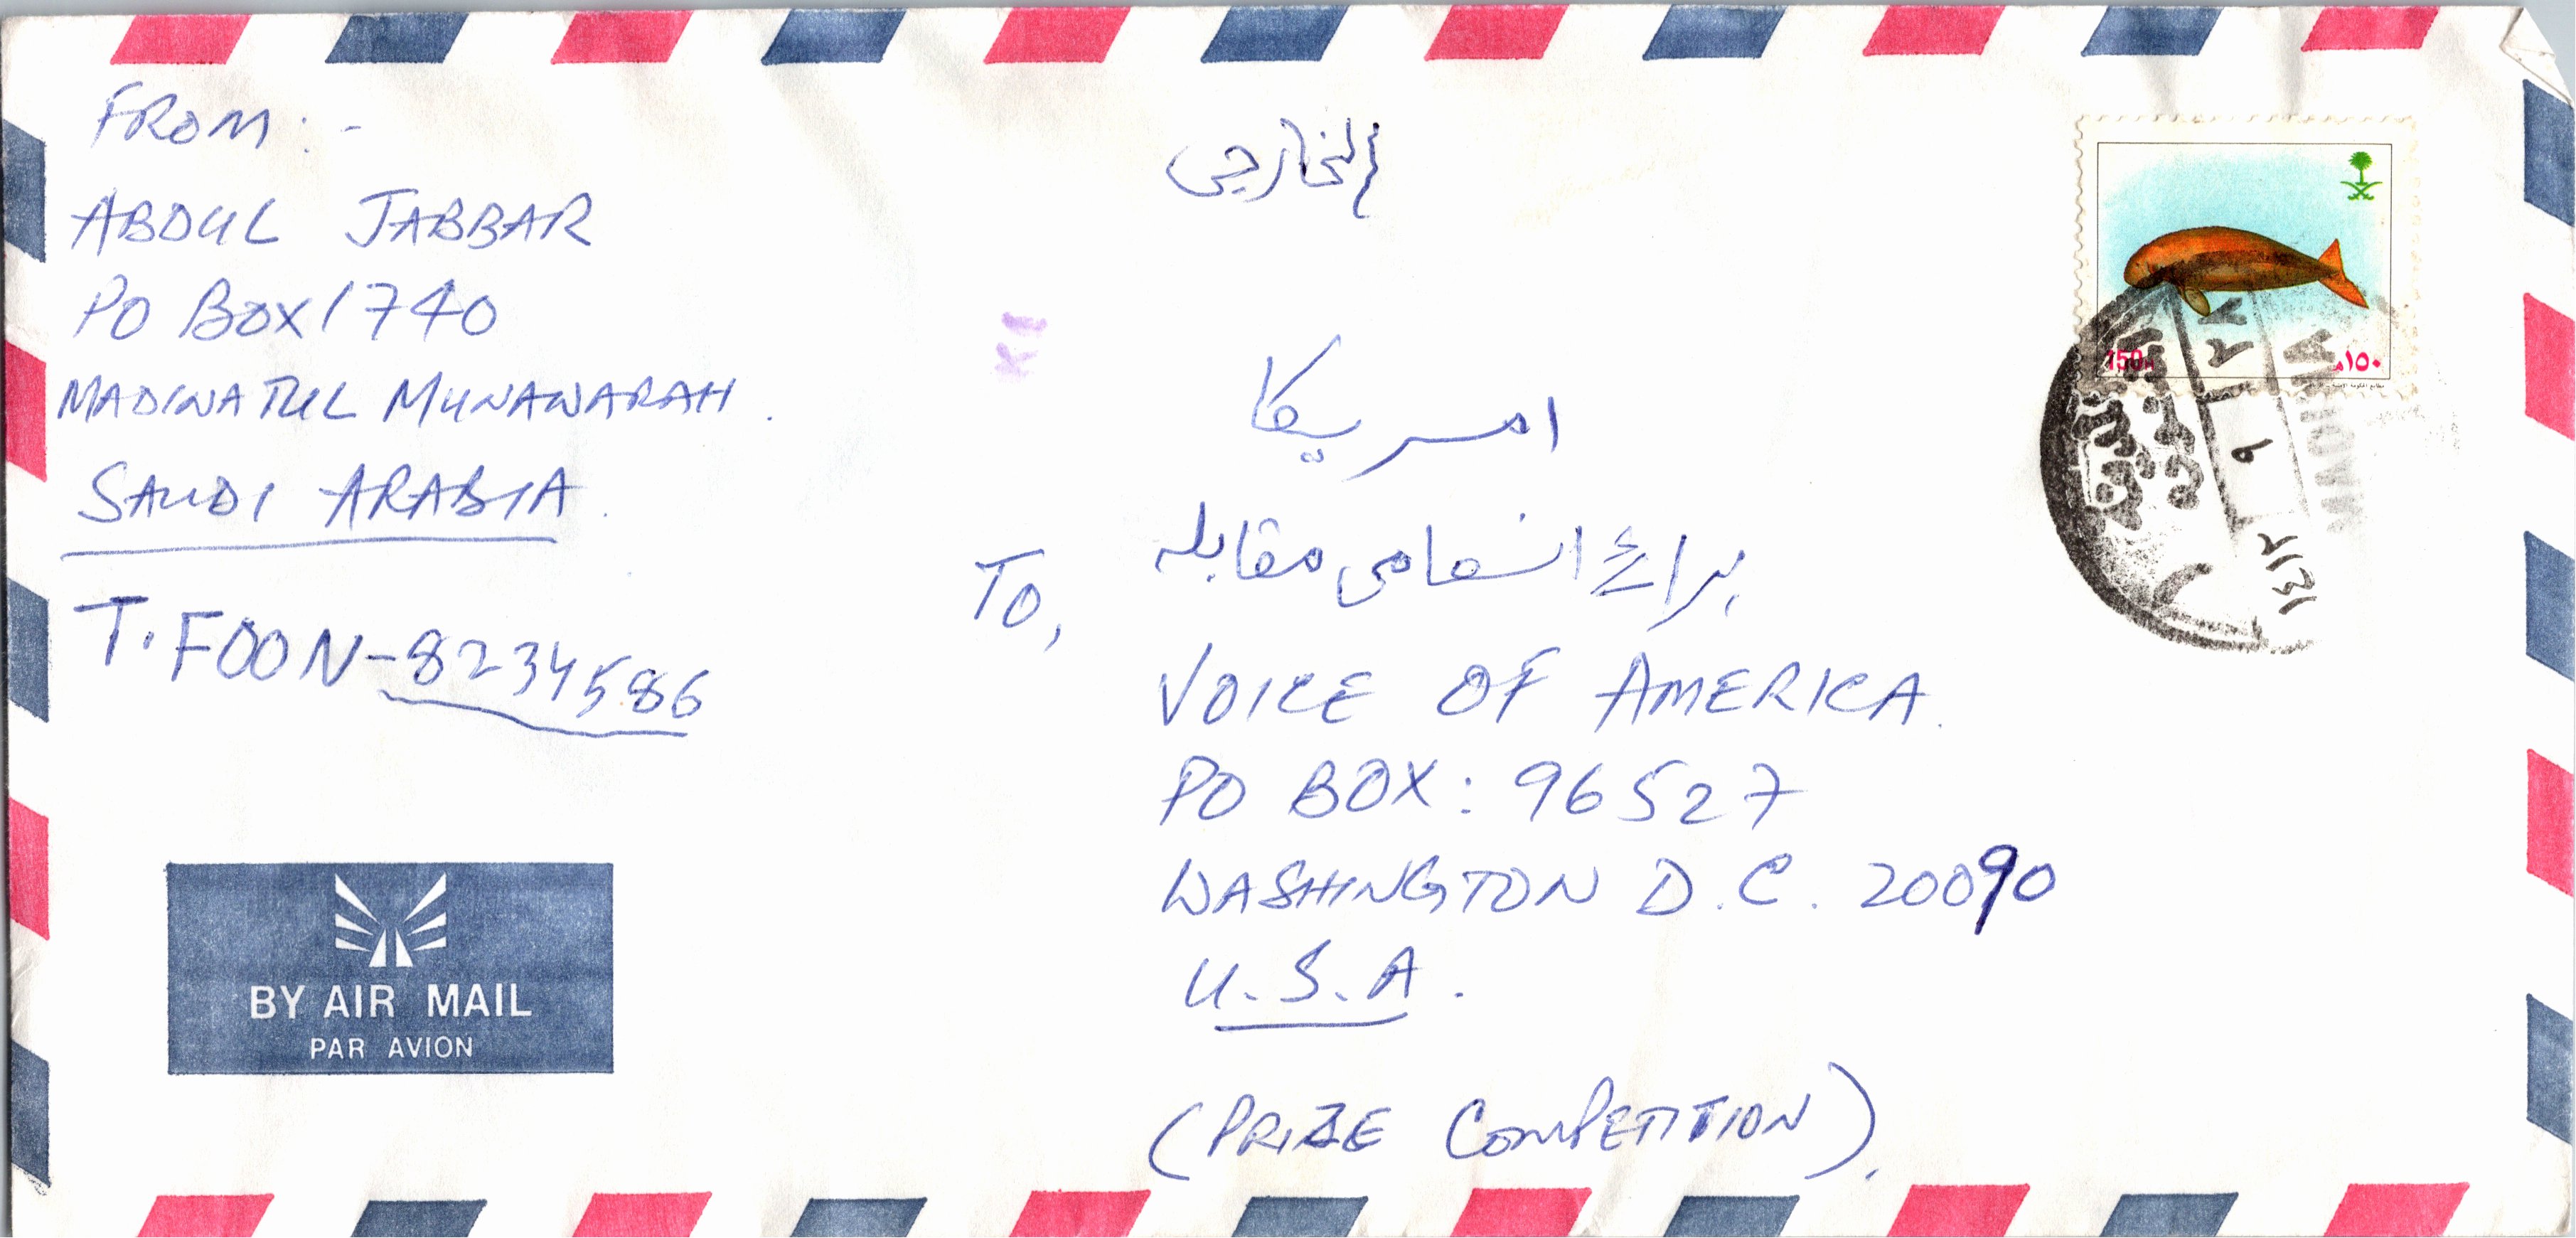 FROM:-
ABDUL JABBAR
PO BOX 1740
MADINATUL MUNAWARAH.
SAUDI ARABIA.
T. FOON-8234586
BY AIR MAIL
PAR AVION
الخارجی
امریکا
To,
برائے انعامی مقابلہ
VOICE OF AMERICA.
PO BOX: 96527
WASHINGTON D.C. 20090
U.S.A.
(PRIZE COMPETITION).
150H ١٥٠هـ
١٤١٢